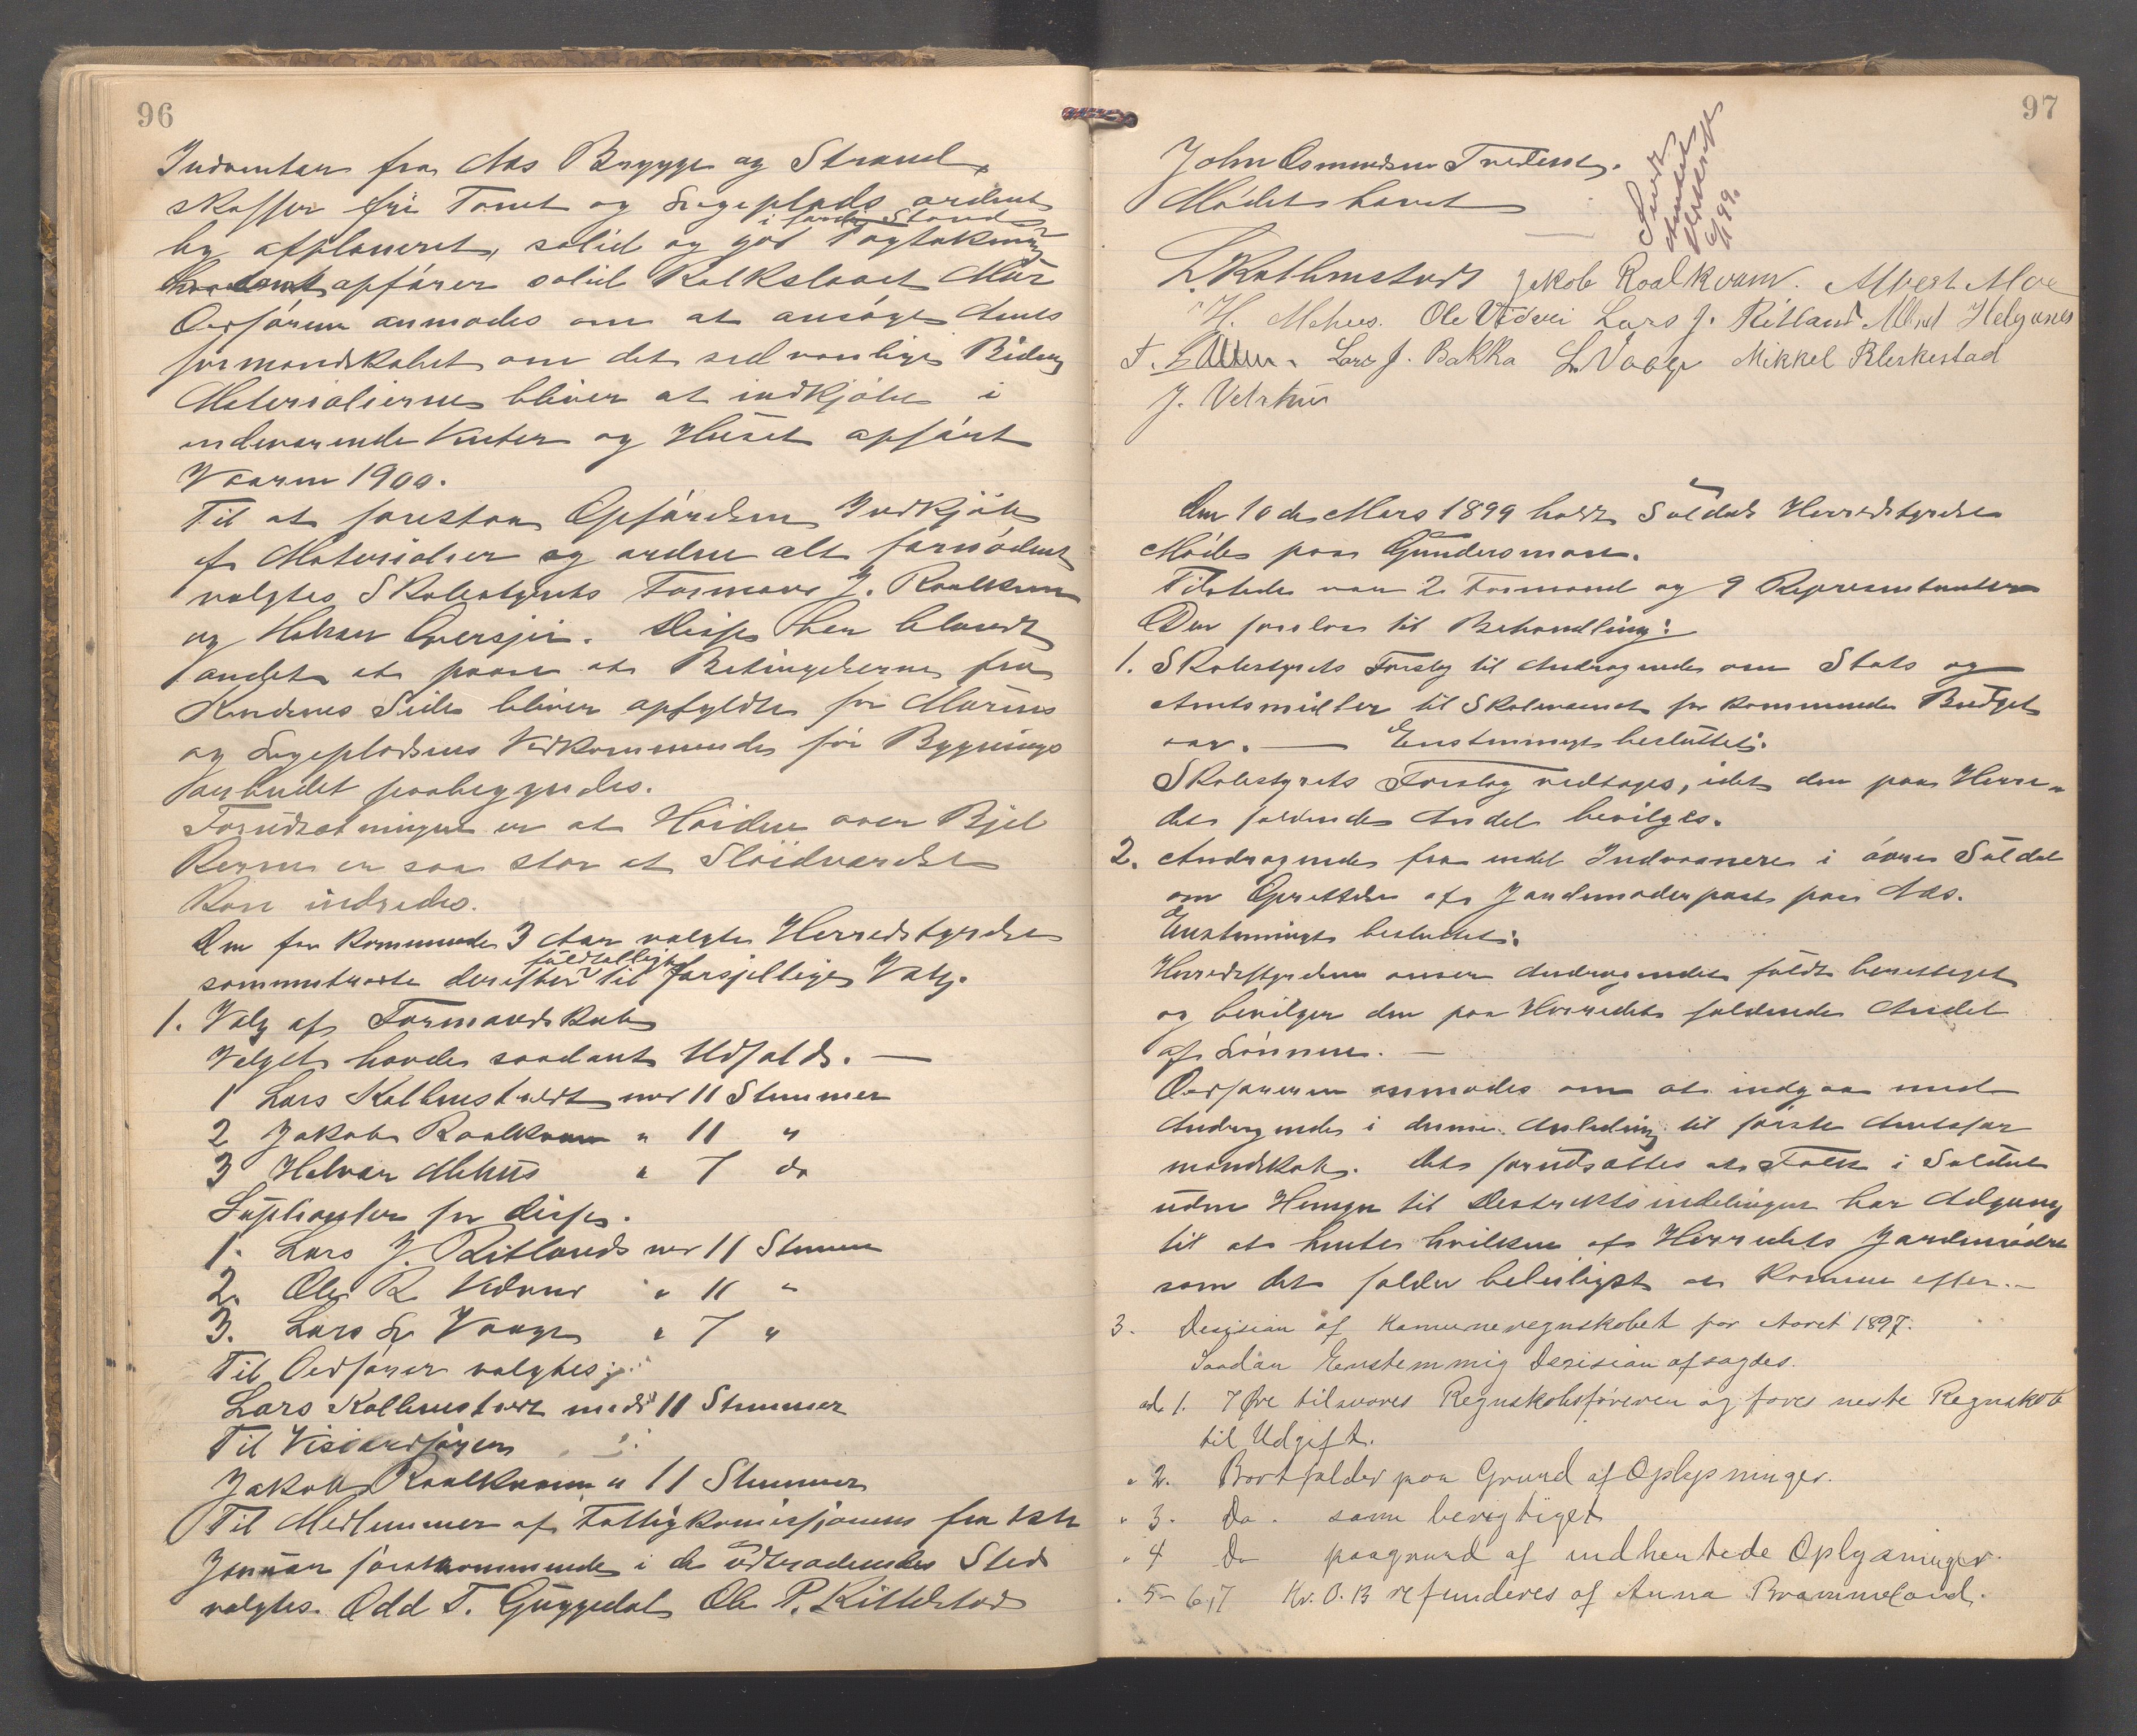 96
fra Aas Brygge og Strand,
skaffer fri Tomt og Lægeplads ordent
i færdig Stand
lig afplaneret, solid og god Tagtækning
opfører solid Kalkslaaet Mür
Ordføren anmodes om at ansøge Amts
formandskabet om det sedvanlige Bidrag
Materialierne bliver at indkjøbe i
indeværende Vinter og Hüset opført
Vaaren 1900.
Til at forestaa Opførelsen Indkjøb
af Materialier og ordne alt fornødent
valgtes Skolestyrets Formand J. Roalkvam
og Disse har blandt
andet at paase at Betingelserne fra
Kredsens Side bliver opfyldte for Mürens
og Vedkommende før Bygnings
arbeidet paabegyndes.
Forüdsætningen er at Høiden over Bjel
kerne er saa stor at Sløidværelse
kan indredes.
Den for kommende 3 Aar valgte Herredstyrelse
füldtallige
sammentraadte derefter til forsjellige Valg.
1. Valg af Formandskab
Valget havde saadant Udfald. —
1 Lars Kolbenstvedt med 11 Stemmer
2 Jakob Roalkvam " 11 "
3 Halvar Mehüs " 7 do
Süplianter for disse.
1. Lars J. Ritland med 11 Stemmer
2. Ole R. " 11 "
3. Lars L. Vaage " 7 "
Til Ordfører valgtes:
Lars Kolbenstvedt med 11 Stemmer
Til Viseordfører
Jakob Roalkvam " 11 Stemmer
Til Medlemmer af Fattigkomissjonen fra 1ste
Janüar førstkommende i de üdtrædendes Sted
valgtes. Odd T. Güggedal Ole P. Kittelstad
97
John Osmundsen Tveteraas.
Mødet hævet
Sendt
Amtet
Udskrift
99.
L. Kolbenstvedt Jakob Roalkvam. Albert Moe
H. Mehus. Ole Vidvei Lars J. Ritland Albert Helgenes
Lars J. Bakka L. Vaage Mikkel Bleskestad
J. Vetrhus
Den 10de Mars 1899 holdt Süldals Herredstyrelse
Møde paa Gündersmoen.
Tilstede var 2 Formænd og 9 Representanter
Der forelaa til Behandling:
1. Skolestyrets Forslag til Andragende om Stats og
Amtsmidler til Skolevæsenet for kommende Büdget
aar. — Enstemmigt beslüttet:
Skolestyrets Forslag vedtages, idet den paa Herre-
det faldende Andel bevilges.
2. Andragende fra endel Indvaanere i øvre Süldal
om Oprettelse af Jordemoderpost paa Aas.
Enstemmigt besluttet:
Herredsstyrelsen anser Andragendet füldt berettiget
og bevilger den paa Herredet faldende Andel
af Lønnen. —
Ordføreren anmodes om at indgaa med
Andragende i denne Anledning til første Amtsfor
mandskab. Det forüdsættes at Folk i Süldal
üden Hensyn til Destriktsindelingen har Adgang
til at hente hvilken af Herredets Jordemødre
som det falder beleiligst at komme efter. —
3. Desisian af Kamuneregnskabet for Aaret 1897.
Saadan Eenstemmig Desisian afsagdes.
ad 1. 7 Øre tilsvares Regnskabsføreren og føres neste Regnskab
til Udgift.
" 2. Bortfalder paa Grund af Oplysninger.
" 3. Do. som berigtiget
" 4 Do paagrund af indhentede Oplysninger.
" 5- 6,17 Kr. 0.13 refunderes af Anna Brommeland.